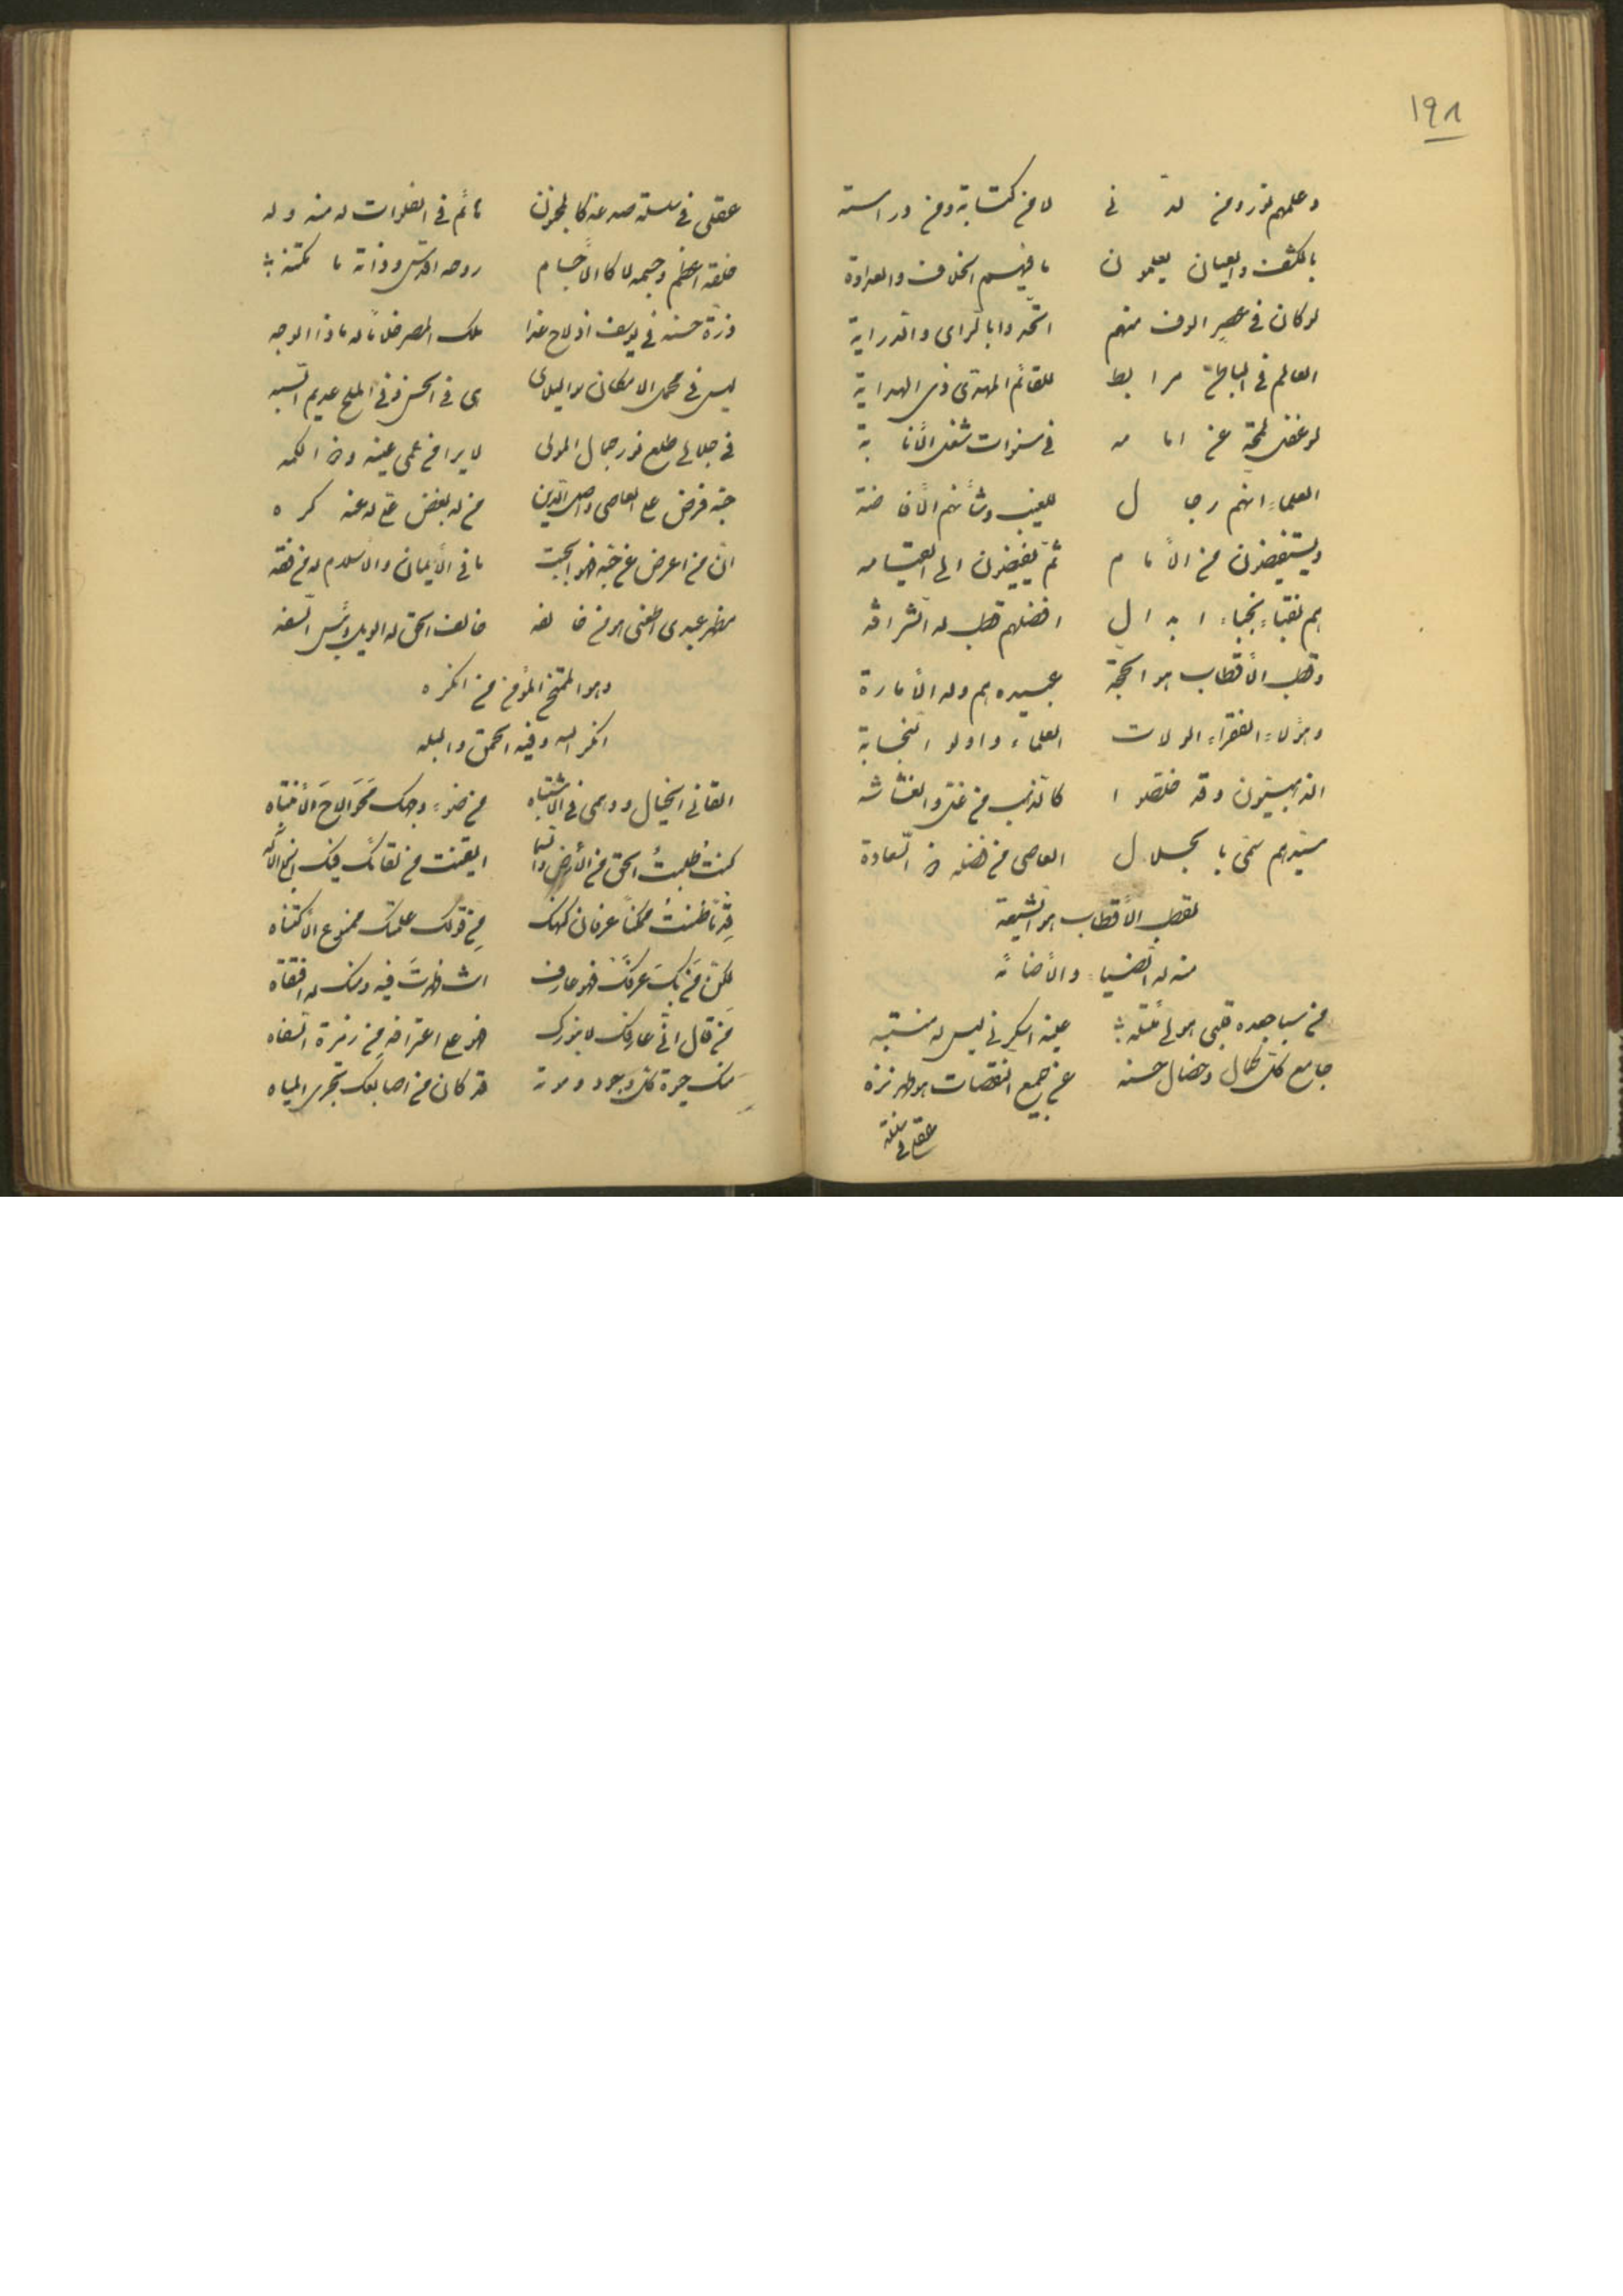 ١٩٨
وعلمهم نور ومن لدني لا من كتابة ومن دراسته
بالكشف والعيان يعلمون ما فيهم الخلاف والعداوة
لو كان في عصر الوف منهم اتّحدوا بالرأى والدراية
العالم في الباطن مرابط للقائم المهدى ذى الهداية
لو غفل لمحة عن امامه في سنوات شغل الأنابة
العلماء انهم رجال للغيب وشأنهم الأفاضة
ويستفيضون من الأمام ثم يفيضون الى القيامه
هم نقباء نجباء ابدال افضلهم قطب له الشرافه
وقطب الأقطاب هو الحجة عبيده هم وله الأمارة
وهؤلاء الفقراء الولات العلماء واولو النجابة
الذهبيون وقد خلصوا كالذهب من غش والغشاشه
سيدهم سمى بالجلال العاصى من فضله السعادة
لقطب الأقطاب هو الشيعة
منه له الضياء والأضائة
من سبا جعده قلبى هو لي عينه اسكرني ليس له منتبه
جامع كل كمال وخصال حسنه عن جميع النقصات هو طهر نزه
عقلى في سلسلة
عقلى في سلسلة صدغه كالمجنون هائم في الفلوات له منه وله
خلقه اعظم وجسمه لا كالأجسام روحه اقدس وذاته ما
ذرة حسنه في يوسف اذ لاح غدا ملك المصر غلاما له ما ذا الوجه
ليس في محمل الامكان هو الليلا ى في الحسن وفي الملح عديم الشبه
في جبالى طلع نور جمال المولى لا يرا من عمى عينه الكمه
حبه فرض على العاصى واصل الدين من له بغض على له عنه كره
انّ من اعرض عن حبّه هو الجبت ما في الأيمان والأسلام له من فقه
مظهر عبدى اطغى هو من خالفه خالف الحق له الويل وبئس السفه
وهو الممتحن المؤمن من انكره
انكر الله وفيه الحمق والبله
القانى الخيال ووهمى في الاشتباه من ضوء وجهك محو الاح الأنتباه
كنت طلبت الحق من الأرض والسما ايقنت من لقائك فيك الأله
قدما ظننت ممكنا عرفان كنهك من قولك علمتك ممنوع الأكتناه
لكن من بك عرفك فهو عارف انت ظهرت فيه ومنك له
من قال انّى عارفك لا بنورك فهو على اعترافه من زمرة السفاه
منك حيوة كل وجود وموته قد كان من اصابعك تجرى المياه